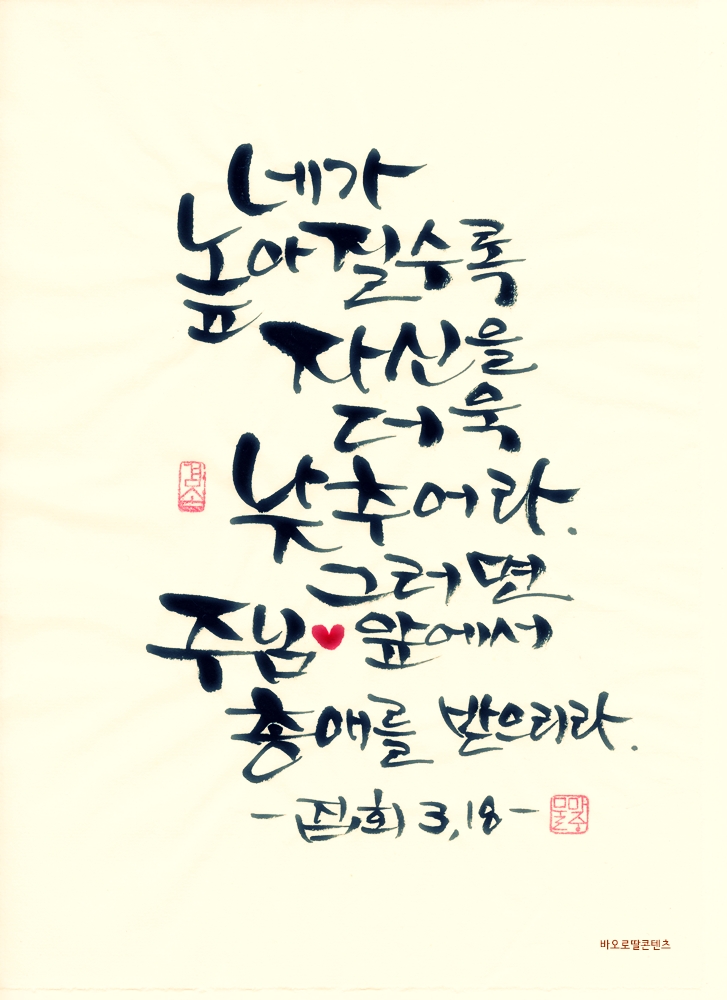 네가
높아질수록
자신을
더욱
낮추어라.
겸손
그러면
주님♥앞에서
총애를 받으리라.
- 집회 3,18 -
바오로딸콘텐츠